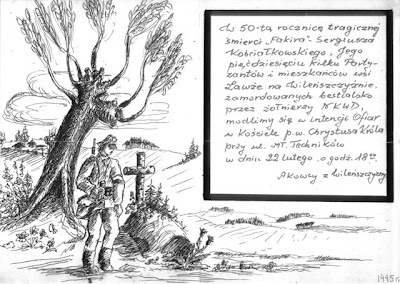 W 50-tą rocznicę tragicznej
śmierci „Fakira" - Sergiusza
Kościałkowskiego, Jego
pięćdziesięciu kilku Party-
zantów i mieszkańców wsi
Ławże na Wileńszczyźnie,
zamordowanych bestialsko
przez żołnierzy NKWD,
modlimy się w intencji Ofiar
w Kościele p.w. Chrystusa Króla
przy ul. Mł. Techników
w dniu 22 lutego o godz. 18⁰⁰
Akowcy z Wileńszczyzny
1995 r.